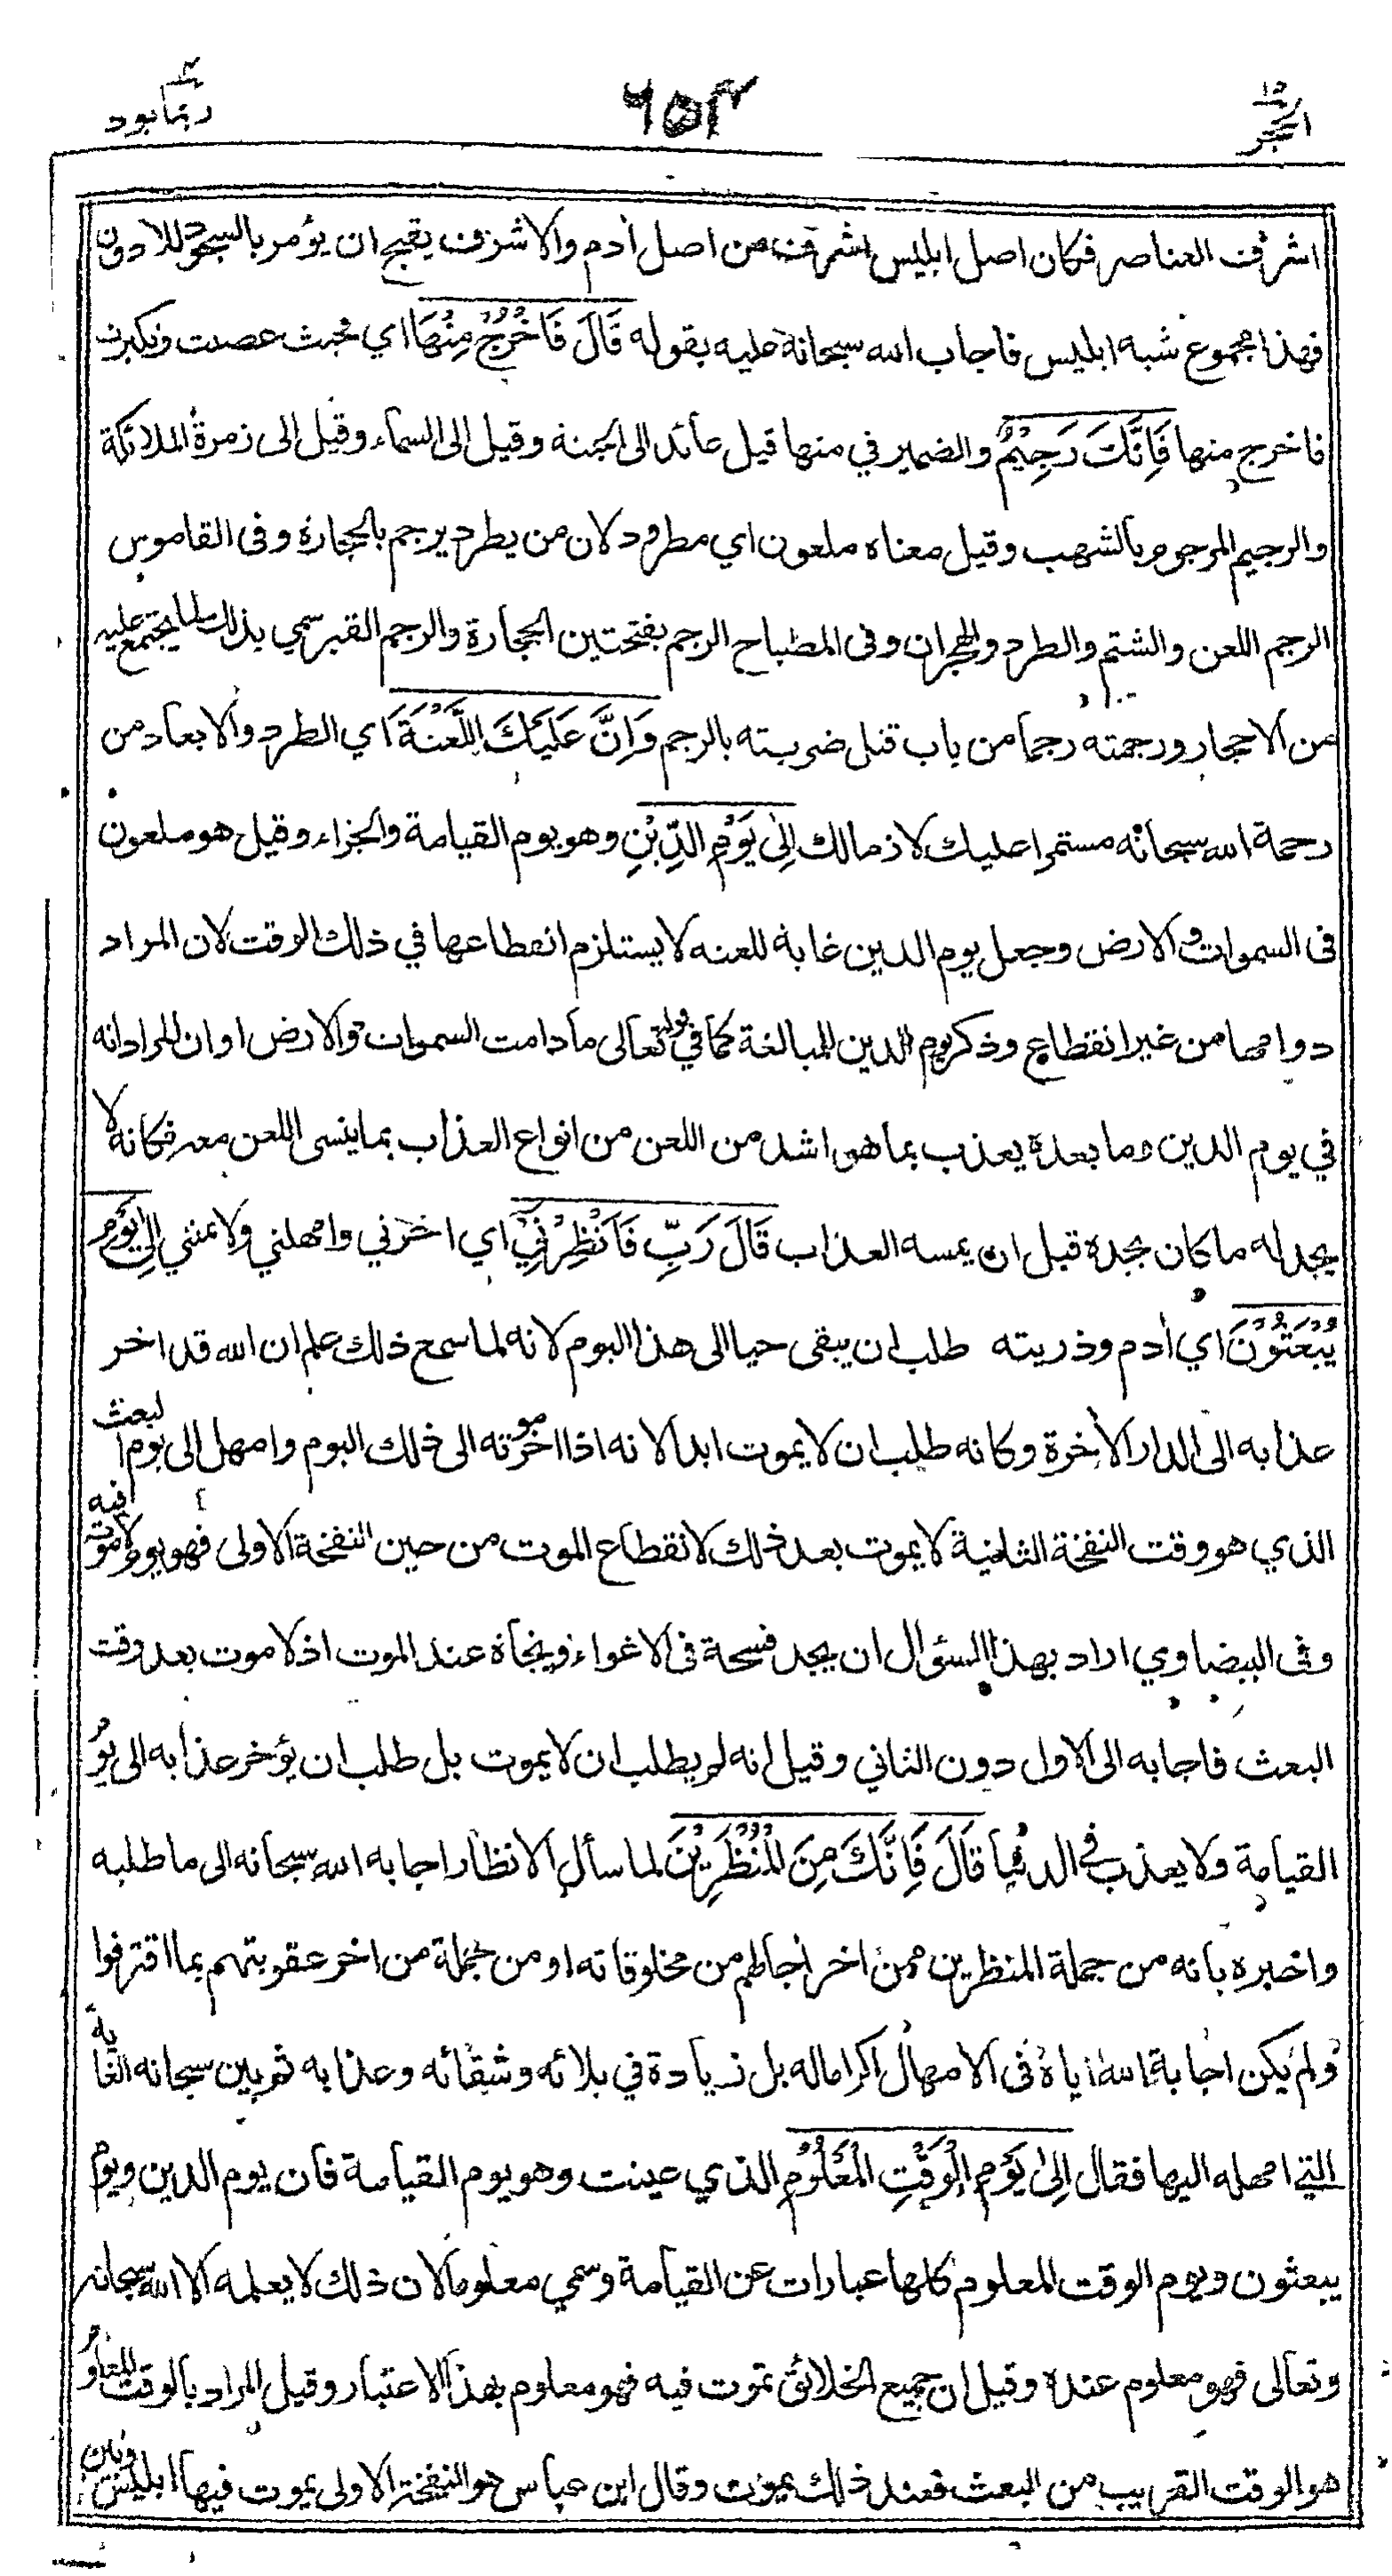 الحجر ١٥
٦٥٢
ربما يود ١٤
اشرف العناصر فكان اصل ابليس اشرف من اصل أدم والاشرف يقبح ان يؤمر بالسجود للادون
فهذا مجموع شبه ابليس فاجاب الله سبحانه عليه بقوله قَالَ فَاخْرُجْ مِنْهَا اي فحيث عصيت وتكبرت
فاخرج منها فَاِنَّكَ رَجِيْمٌ والضمير في منها قيل عائد الى الجنة وقيل الى السماء وقيل الى زمرة الملائكة
والرجيم المرجوم بالشهب وقيل معناه ملعون اي مطرود لان من يطرد يرجم بالحجارة وفى القاموس
الرجم اللعن والشتم والطرد والهجران وفى المصباح الرجم بفتحتين الحجارة والرجم القبر سمي بذلك لما يجتمع عليه
من الاحجار ورجمته رجما من باب قتل ضربته بالرجم وَاِنَّ عَلَيْكَ اللَّعْنَةَ اي الطرد والابعاد من
رحمة الله سبحانه مستمرا عليك لازما لك اِلٰى يَوْمِ الدِّيْنِ وهو يوم القيامة والجزاء وقيل هو ملعون
فى السموات والارض وجعل يوم الدين غاية للعنه لا يستلزم انقطاعها في ذلك الوقت لان المراد
دوامها من غير انقطاع وذكر يوم الدين للمبالغة كما في قوله تعالى ما دامت السموات والارض او ان المراد انه
في يوم الدين وما بعده يعذب بما هو اشد من اللعن من انواع العذاب بما ينسى اللعن معه فكانه لا
يجد له ما كان يجده قبل ان يمسه العذاب قَالَ رَبِّ فَاَنْظِرْنِيْ اي اخرني وامهلني ولا تمتني اِلٰى يَوْمِ
يُبْعَثُوْنَ اي أدم وذريته طلب ان يبقى حيا الى هذا اليوم لانه لما سمع ذلك علم ان الله قد اخر
عذابه الى الدار الأخرة وكانه طلب ان لا يموت ابدا لانه اذا اخر موته الى ذلك اليوم وامهل الى يوم البعث
الذي هو وقت النفخة الثانية لا يموت بعد ذلك لانقطاع الموت من حين النفخة الاولى فهو يوم لا موت فيه
وفى البيضاوي اراد بهذا السئوال ان يجد فسحة فى الاغواء ونجاة عند الموت اذ لا موت بعد وقت
البعث فاجابه الى الاول دون الثاني وقيل انه لم يطلب ان لا يموت بل طلب ان يؤخر عذابه الى يوم
القيامة ولا يعذب في الدنيا قَالَ فَاِنَّكَ مِنَ الْمُنْظَرِيْنَ لما سأل الانظار اجابه الله سبحانه الى ما طلبه
واخبره بانه من جملة المنظرين ممن اخر أجالهم من مخلوقاته او من جملة من اخر عقوبتهم بما اقترفوا
ولم يكن اجابة الله اياه فى الامهال اكراما له بل زيادة في بلائه وشقائه وعذابه ثم بين سبحانه الغاية
التي امهله اليها فقال اِلٰى يَوْمِ الْوَقْتِ الْمَعْلُوْمِ الذي عينت وهو يوم القيامة فان يوم الدين ويوم
يبعثون ويوم الوقت المعلوم كلها عبارات عن القيامة وسمي معلوما لان ذلك لا يعلمه الا الله سبحانه
وتعالى فهو معلوم عنده وقيل ان جميع الخلائق تموت فيه فهو معلوم بهذا الاعتبار وقيل المراد بالوقت المعلوم
هو الوقت القريب من البعث فعند ذلك يموت وقال ابن عباس هو النفخة الاولى يموت فيها ابليس وبين